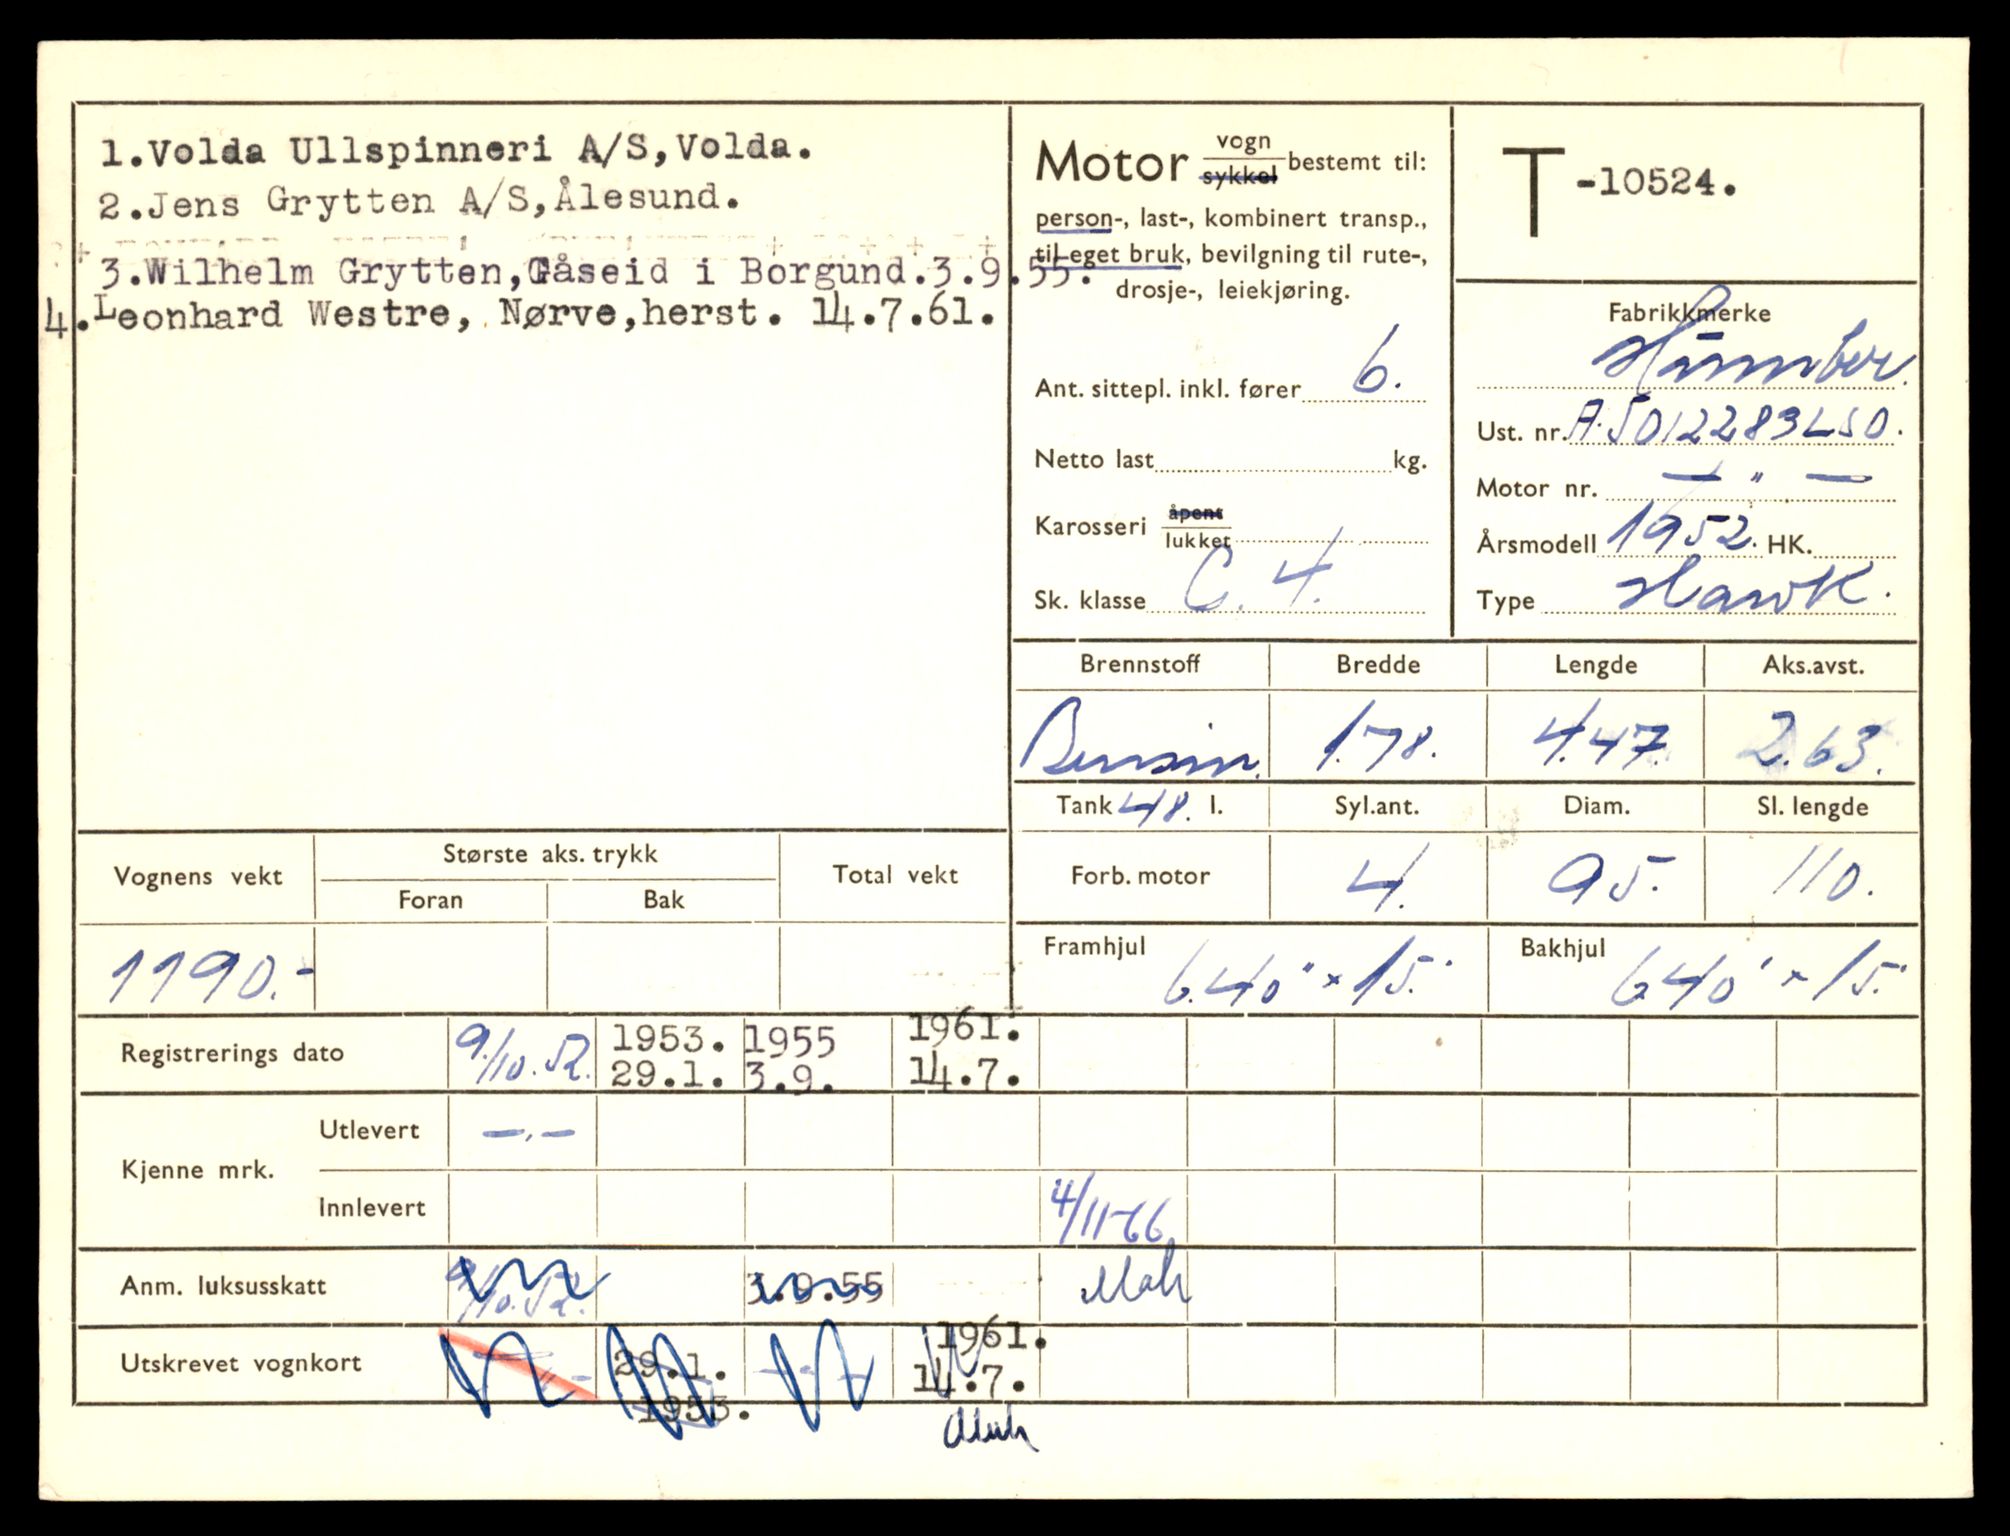 1.Volda Ullspinneri A/S,Volda.
2.Jens Grytten A/S,Ålesund.
3.Wilhelm Grytten,Gåseid i Borgund.3.9.55.
4.Leonhard Westre, Nørve,herst. 14.7.61.
Motor vogn
sykkel bestemt til:
person-, last-, kombinert transp.,
til eget bruk, bevilgning til rute-,
drosje-, leiekjøring.
Ant. sittepl. inkl. fører 6.
Netto last kg.
Karosseri åpent
lukket
Sk. klasse C. 4.
T -10524.
Fabrikkmerke
Humber.
Ust. nr. A.5012283LSO.
Motor nr. — " —
Årsmodell 1952. HK.
Type Hawk.
Brennstoff Bredde Lengde Aks.avst.
Bensin. 1.78. 4.47. 2.63.
Tank 48. l. Syl.ant. Diam. Sl. lengde
Forb. motor 4. 95. 110.
Framhjul 6.40" x 15." Bakhjul 640" x 15."
Vognens vekt Største aks. trykk Total vekt
Foran Bak
1190.-
Registrerings dato 9./10. 52. 1953. 29.1. 1955 3.9. 1961. 14.7.
Kjenne mrk. Utlevert —.—
Innlevert 4/11-66
Anm. luksusskatt 9/10. 52. 3.9.55
Utskrevet vognkort — " — 29.1. 1953. 1961. 14.7.